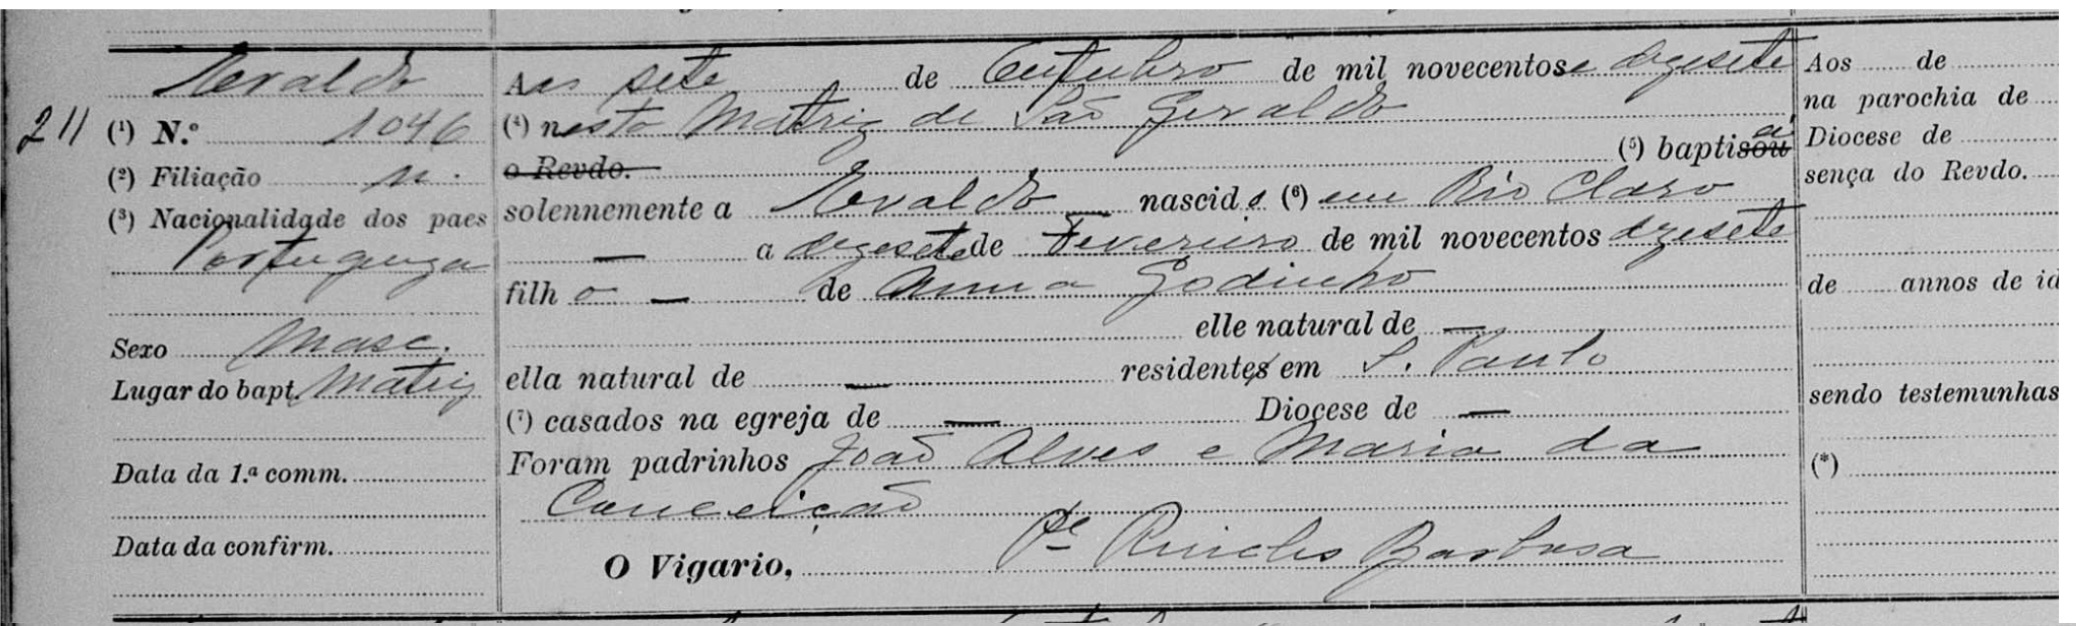 Evaldo
211 (¹) N.º 1046
(²) Filiação n.
(³) Nacionalidade dos paes
Portugueza
Sexo Masc.
Lugar do bapt. Matriz
Data da 1.ª comm.
Data da confirm.
Aos sete de Outubro de mil novecentos e dezesete
(⁴) nesta Matriz de São Geraldo
o Revdo. (⁵) baptisou ei
solennemente a Evaldo — nascido (⁶) em Rio Claro
— a dezesete de Fevereiro de mil novecentos dezesete
filho — de Anna Godinho
elle natural de —
ella natural de — residentes em S. Paulo
(⁷) casados na egreja de — Diocese de —
Foram padrinhos João Alves e Maria da
Conceição
O Vigario, Pe Barbosa
Aos de
na parochia de
Diocese de
sença do Revdo.
de annos de id
sendo testemunhas
(*)